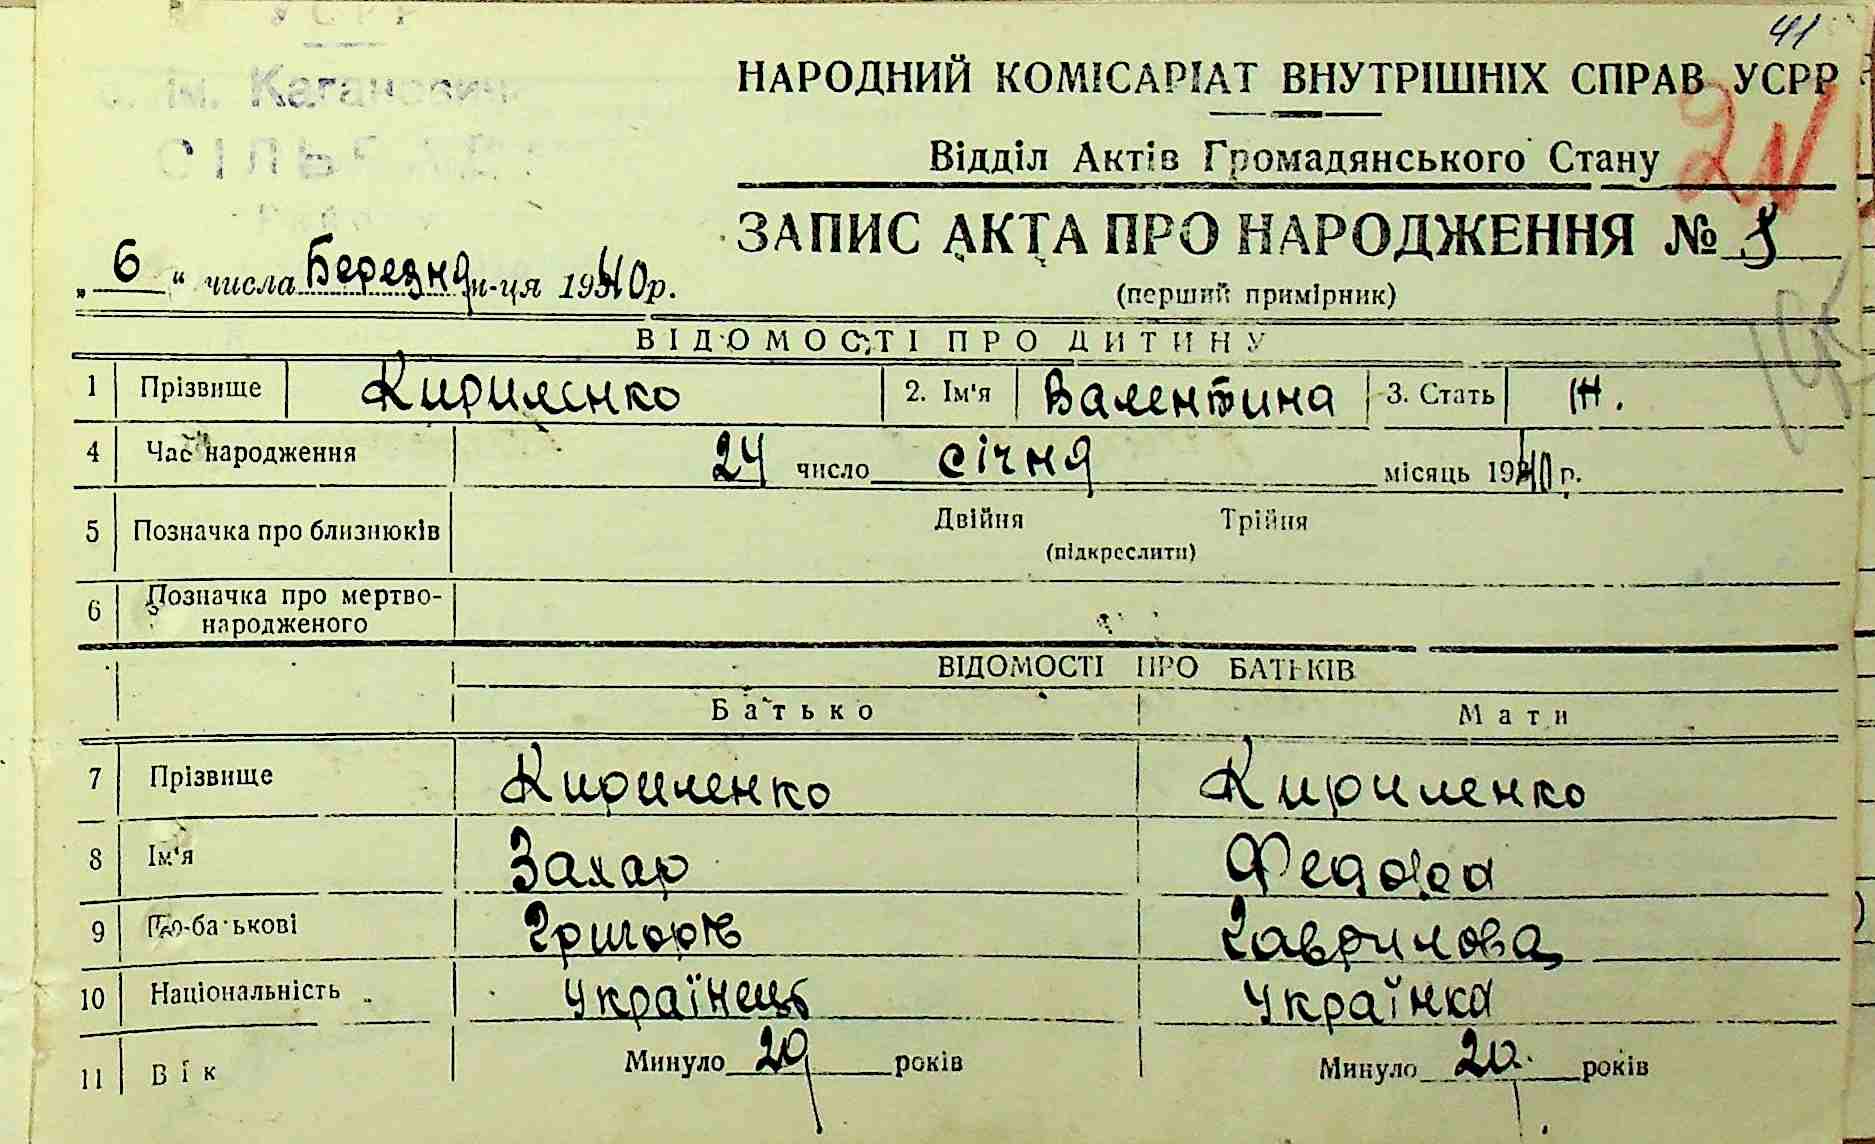 УСРР
ім. Кагановича
СІЛЬРАДА
41
НАРОДНИЙ КОМІСАРІАТ ВНУТРІШНІХ СПРАВ УСРР
Відділ Актів Громадянського Стану
ЗАПИС АКТА ПРО НАРОДЖЕННЯ №
(перший примірник)
„ 6 “ числа Березня м-ця 1940 р.
ВІДОМОСТІ ПРО ДИТИНУ
1 Прізвище Кириленко 2. Ім'я Валентина 3. Стать Ж.
4 Час народження 24 число січня місяць 1940 р.
5 Позначка про близнюків Двійня Трійня
(підкреслити)
6 Позначка про мертво-
народженого
ВІДОМОСТІ ПРО БАТЬКІВ
Батько Мати
7 Прізвище Кириленко Кириленко
8 Ім'я Захар Федора
9 По-батькові Григорів Гаврилова
10 Національність Українець Українка
11 Вік Минуло 29 років Минуло 20 років